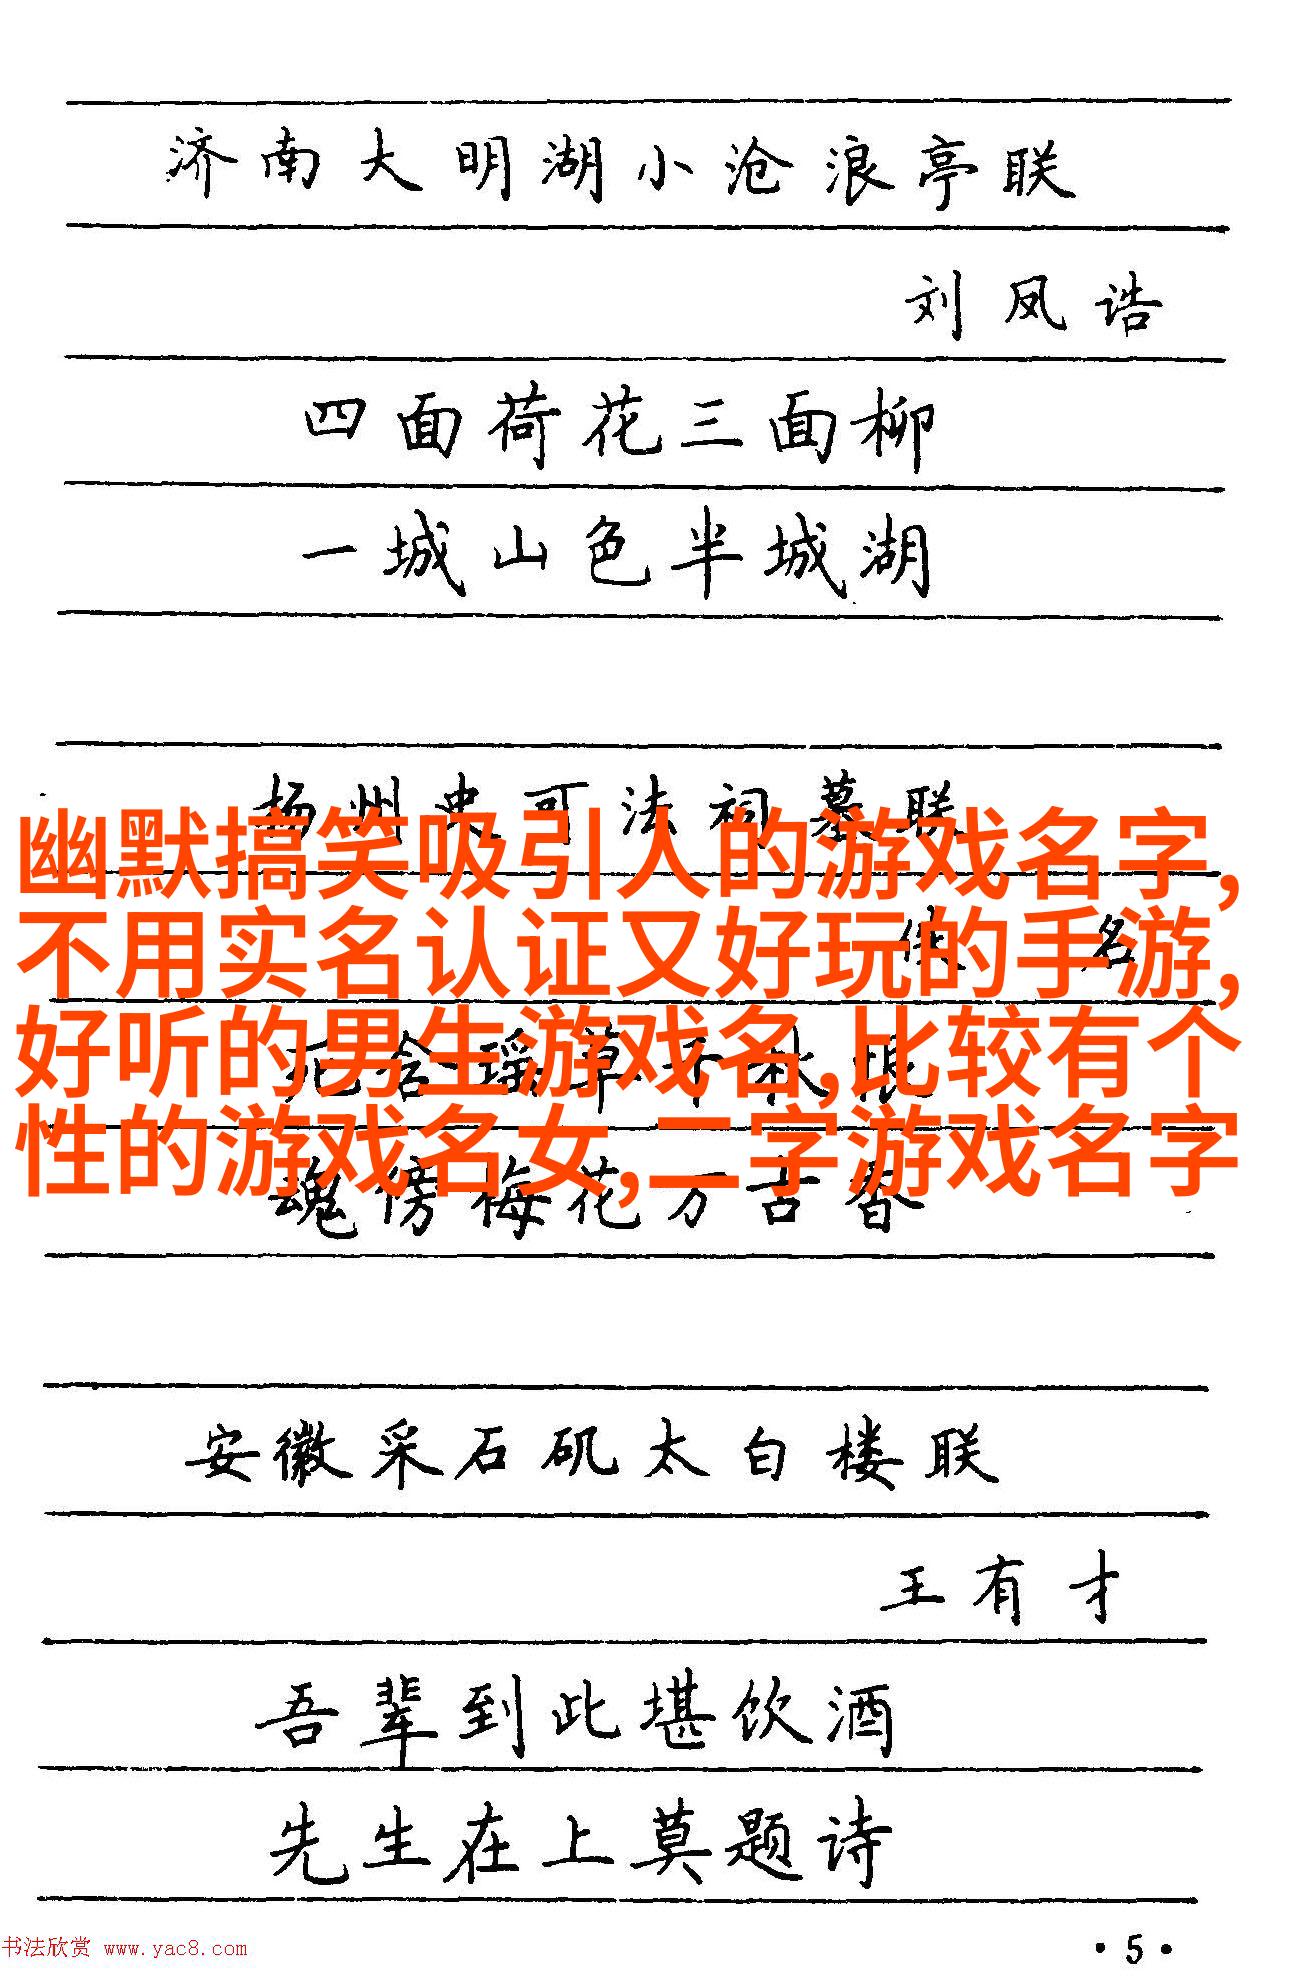 济南大明湖小沧浪亭联
刘凤诰
四面荷花三面柳
一城山色半城湖
扬州史可法祠墓联
幽默搞笑吸引人的游戏名字,
佚名
不用实名认证又好玩的手游,
好听的男生游戏名,比较有个
含瑶草千秋
性的游戏名女,二字游戏名字
魂傍梅花万古香
安徽采石矶太白楼联
王有才
吾辈到此堪饮酒
先生在上莫题诗
书法欣赏 www.yac8.com
·5·